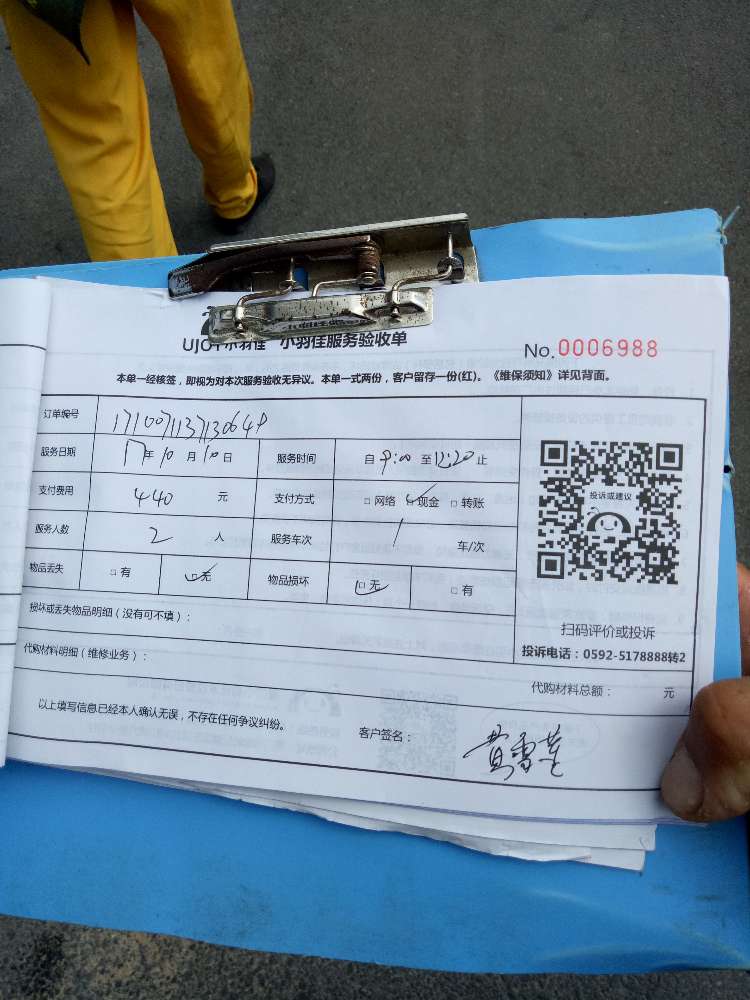 小羽佳 小羽佳服务验收单
No.0006988
本单一经核签，即视为对本次服务验收无异议。本单一式两份，客户留存一份(红)。《维保须知》详见背面。
订单编号
服务日期 17年10月10日 服务时间 自9:00至12:20止
支付费用 440 元 支付方式 □网络 ☑现金 □转账
服务人数 2 人 服务车次 1 车/次
物品丢失 □有 ☑无 物品损坏 ☑无 □有
损坏或丢失物品明细（没有可不填）：
代购材料明细（维修业务）：
投诉或建议
扫码评价或投诉
投诉电话：0592-5178888转2
代购材料总额： 元
以上填写信息已经本人确认无误，不存在任何争议纠纷。 客户签名： 黄雪莲